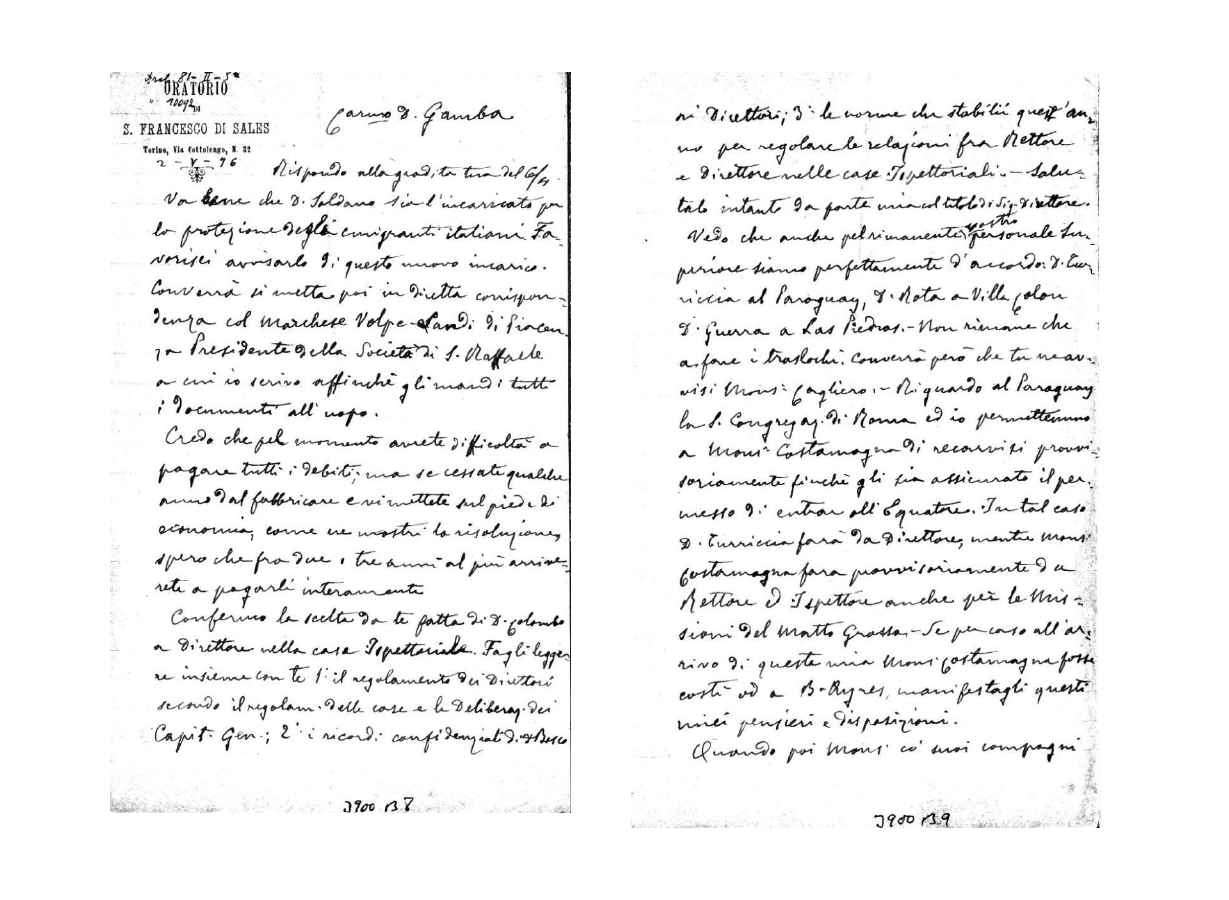 ORATORIO
DI
S. FRANCESCO DI SALES
Torino, Via Cottolengo, N. 32
2 - V - 96
Carmo D. Gamba
Rispondo alla gradita tua del 6/4
Va bene che D. Soldano sia l'incaricato per
la protezione degli emigranti italiani. Fa-
vorisci avvisarlo di questo nuovo incarico.
Converrà si metta poi in diretta corrispon-
denza col Marchese Volpe-Landi di Piacen-
za Presidente della Società di S. Raffaele
a cui io scrivo affinchè gli mandi tutti
i documenti all'uopo.
Credo che pel momento avrete difficoltà a
pagare tutti i debiti; ma se cessate qualche
anno dal fabbricare e vi mettete sul piede di
economia, come ne mostri la risoluzione,
spero che fra due o tre anni al più arrive-
rete a pagarli interamente
Confermo la scelta da te fatta di D. Colombo
a Direttore nella casa Ispettoriale. Fagli legge-
re insieme con te 1° il regolamento dei Direttori
secondo il regolam. delle case e le Deliberaz. dei
Capit. Gen.; 2° i ricordi confidenziali di D. Bosco
ai Direttori; 3° le norme che stabilii quest'an-
no per regolare le relazioni fra Rettore
e Direttore nelle case Ispettoriali. - Salu-
talo intanto da parte mia col titolo di Sig. Direttore.
Vedo che anche pel rimanente vostro personale Su-
periore siamo perfettamente d'accordo: D. Tur-
riccia al Paraguay, D. Rota a Villa Colon
D. Guerra a Las Piedras. - Non rimane che
a fare i traslochi. Converrà però che tu ne av-
visi Mons. Cagliero. - Riguardo al Paraguay
la S. Congregaz. di Roma ed io permettemmo
a Mons. Costamagna di recarvisi provvi-
soriamente finchè gli sia assicurato il per-
messo di entrar all'Equatore. In tal caso
D. Turriccia farà da Direttore, mentre Mons.
Costamagna farà provvisoriamente da
Rettore ed Ispettore anche per le Mis-
sioni del Matto Grosso. - Se per caso all'ar-
rivo di questa mia Mons. Costamagna fosse
costì od a B. Ayres, manifestagli questi
miei pensieri e disposizioni.
Quando poi Mons. co' suoi compagni
3900 B 7
3900 B 9